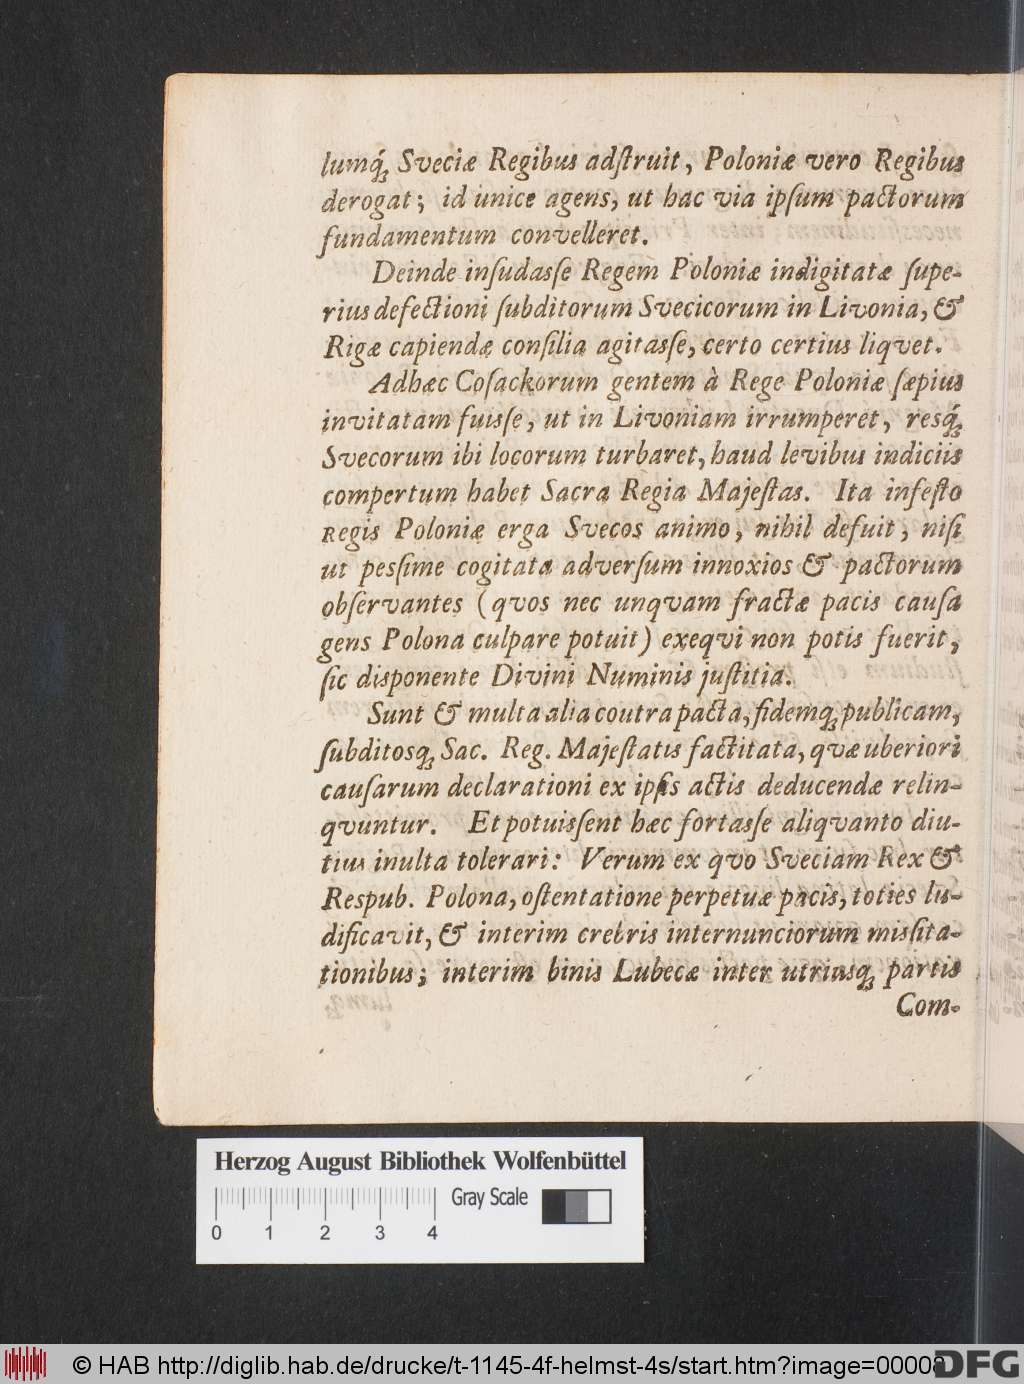 lumq́ꝫ Sveciæ Regibus adſtruit, Poloniæ vero Regibus
derogat; id unice agens, ut hac via ipſum pactorum
fundamentum convelleret.
Deinde inſudasſe Regem Poloniæ indigitatæ ſupe-
rius defectioni ſubditorum Svecicorum in Livonia, &
Rigæ capiendæ conſilia agitasſe, certo certius liqvet.
Adhæc Coſackorum gentem à Rege Poloniæ ſæpius
invitatam fuisſe, ut in Livoniam irrumperet, resq́ꝫ
Svecorum ibi locorum turbaret, haud levibus indiciis
compertum habet Sacra Regia Majeſtas. Ita infeſto
Regis Poloniæ erga Svecos animo, nihil defuit, niſi
ut pesſime cogitata adverſum innoxios & pactorum
obſervantes (qvos nec unqvam fractæ pacis cauſa
gens Polona culpare potuit) exeqvi non potis fuerit,
ſic disponente Divini Numinis juſtitia.
Sunt & multa alia coutra pacta, fidemqꝫ publicam,
ſubditosqꝫ Sac. Reg. Majeſtatis factitata, qvæ uberiori
cauſarum declarationi ex ipſis actis deducendæ relin-
qvuntur. Et potuisſent hæc fortasſe aliqvanto diu-
tius inulta tolerari: Verum ex qvo Sveciam Rex &
Respub. Polona, oſtentatione perpetuæ pacis, toties lu-
dificavit, & interim crebris internunciorum misſita-
tionibus; interim binis Lubecæ inter utriusqꝫ partis
Com-
Herzog August Bibliothek Wolfenbüttel
Gray Scale
0 1 2 3 4
© HAB http://diglib.hab.de/drucke/t-1145-4f-helmst-4s/start.htm?image=00008
DFG